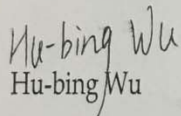 Hu-bing Wu
Hu-bing Wu